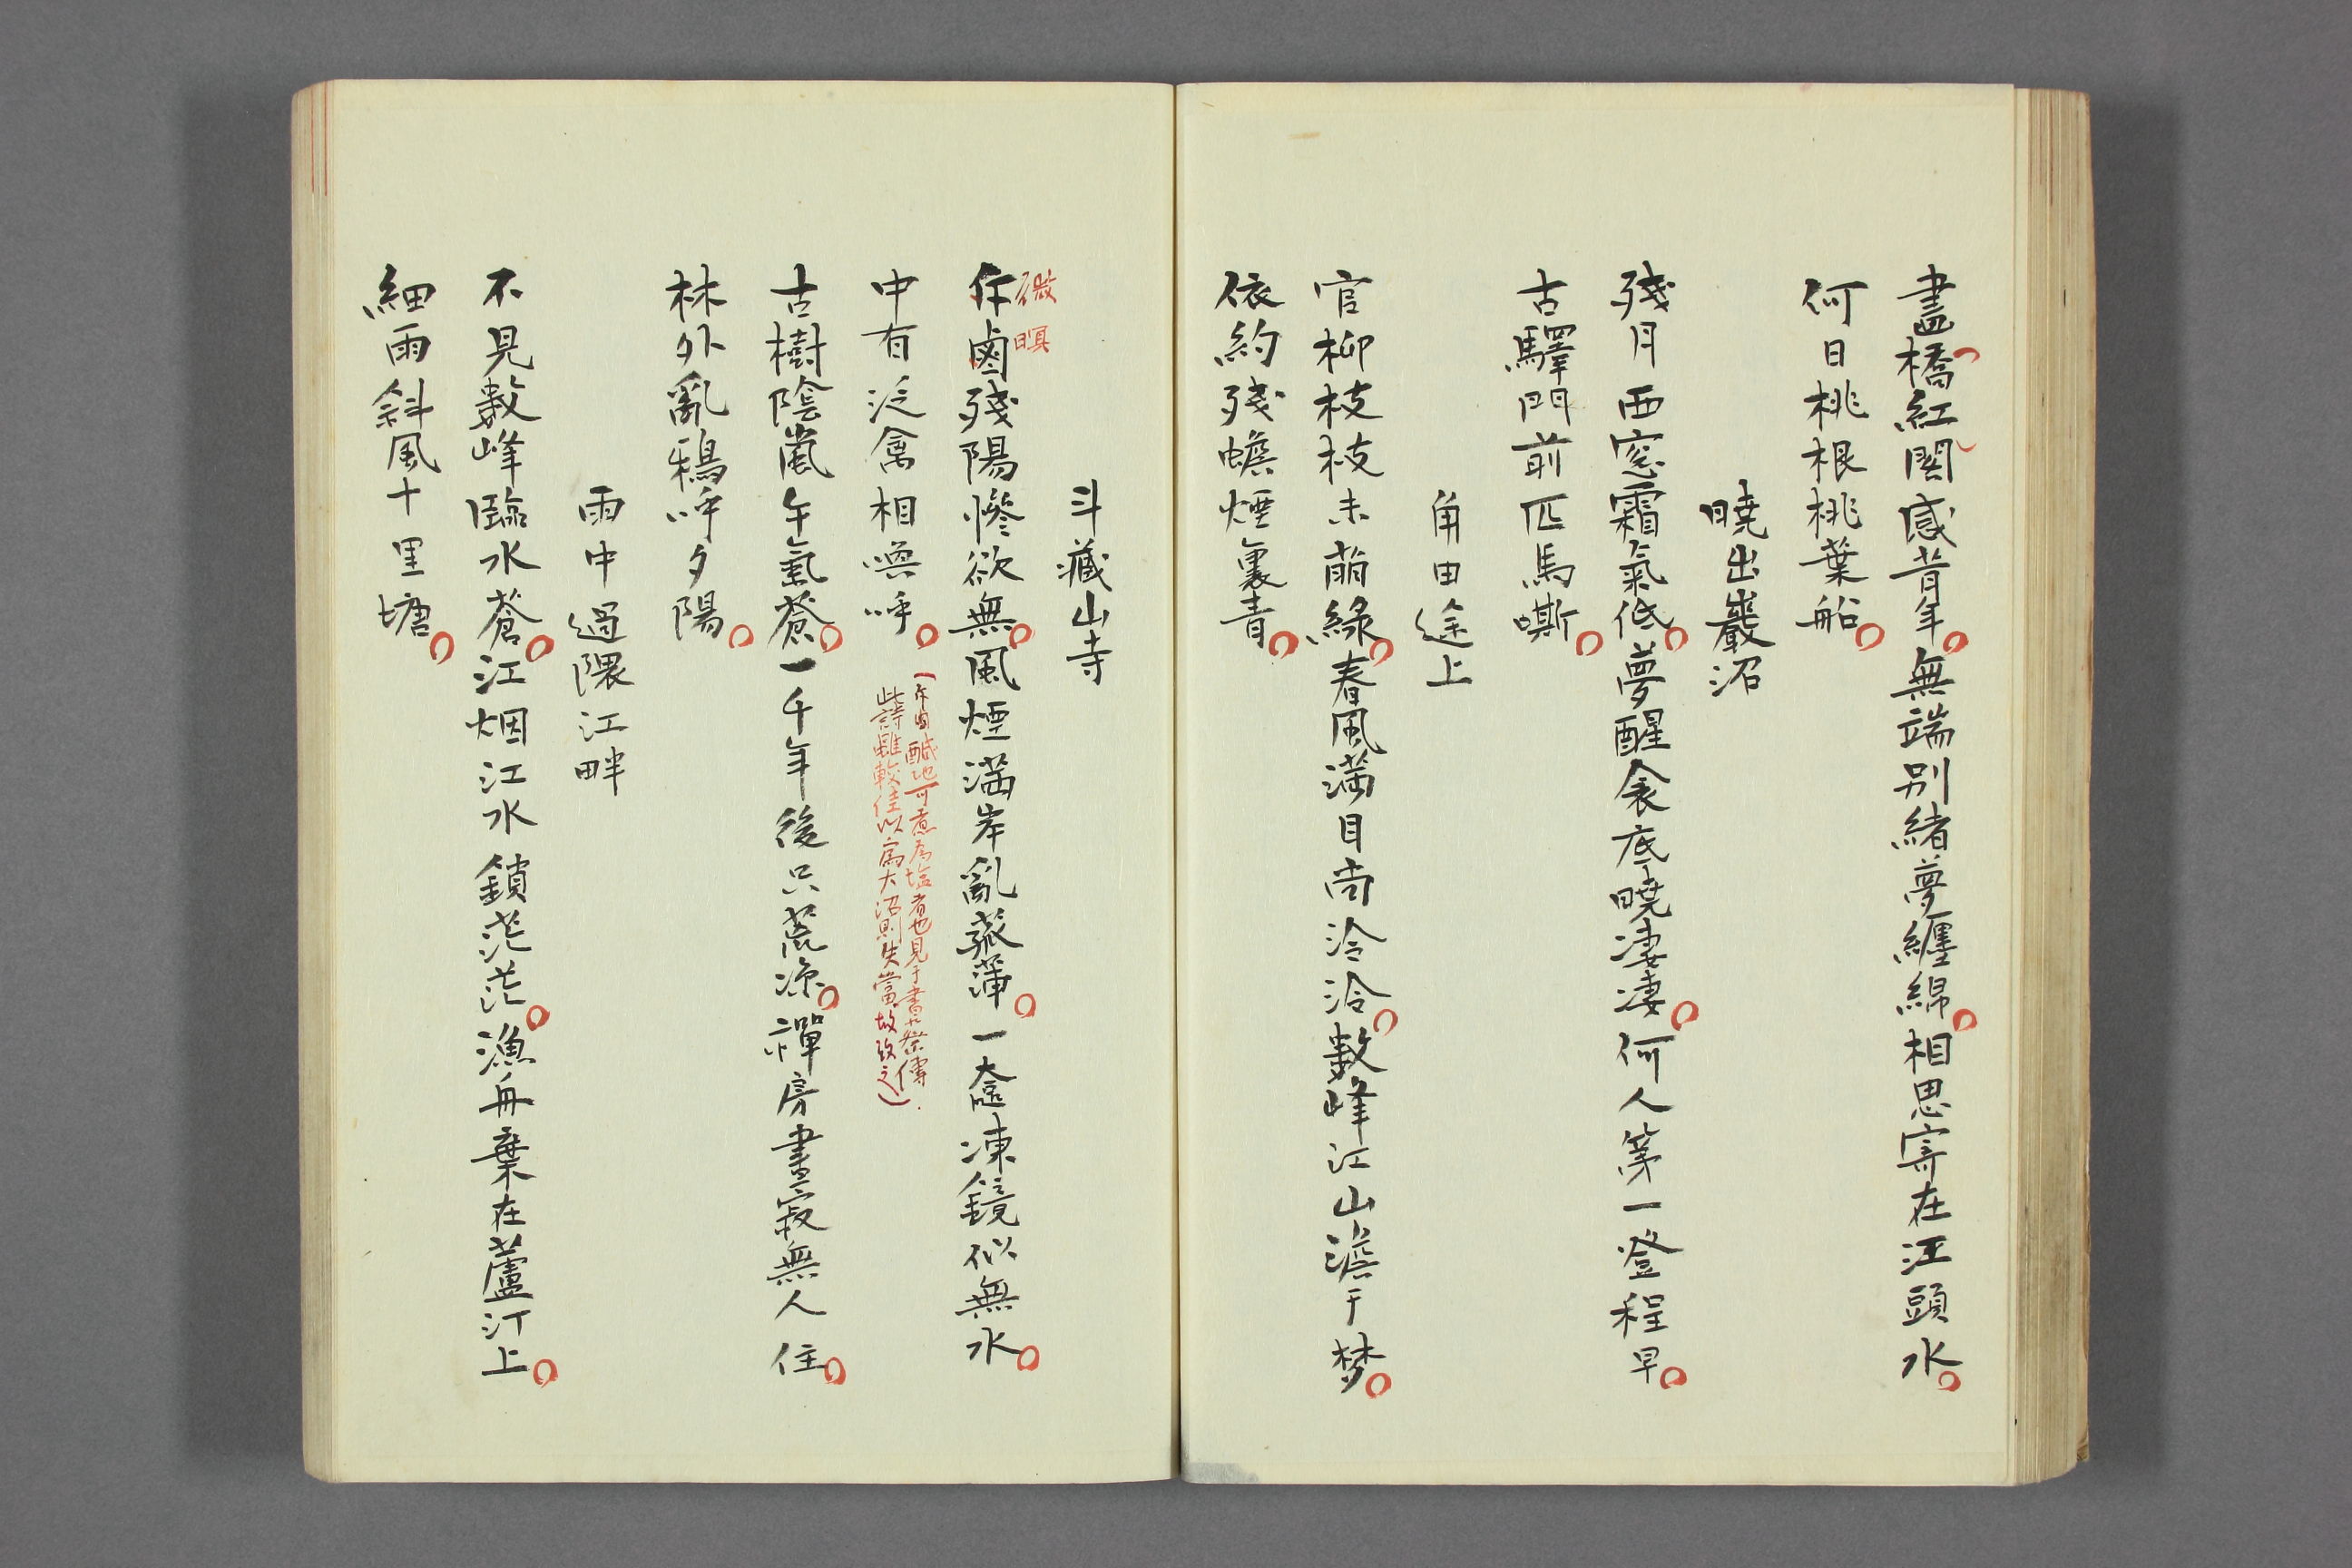 畫橋紅閣感昔年無端別緒夢纏綿相思寄在江頭水
何日桃根桃葉船
曉出嚴沼
殘月西窓霜氣低夢醒衾底曉凄凄何人第一登程早
古驛門前匹馬嘶
角田途上
官柳枝枝未萠綠春風滿目尚泠泠數峰江山澹于梦
依約殘蟾煙裏青
斗藏山寺
微暝
斥鹵殘陽慘欲無風煙滿岸亂菰蒲一奩凍鏡似無水
中有泛禽相喚呼
(斥鹵醎地可煮為塩者也見于書蔡傳
此詩雖較佳以寫大沼則失當故改之)
古樹陰嵐午氣蒼一千年後只荒凉禪房晝寂無人住
林外亂鴉呼夕陽
雨中過隈江畔
不見數峰臨水蒼江烟江水鎖茫茫漁舟棄在蘆汀上
細雨斜風十里塘